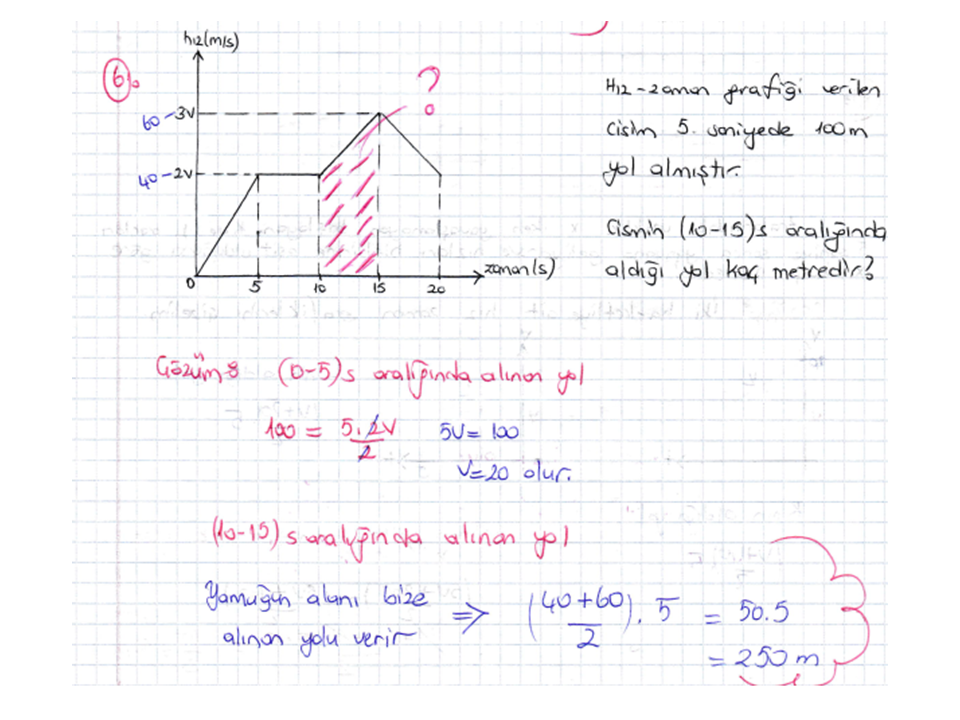 hız(m/s)
6.
60-3V
40-2V
0
5
10
15
20
zaman(s)
?
Hız-zaman grafiği verilen
cisim 5. saniyede 100m
yol almıştır.
Cismin (10-15)s aralığında
aldığı yol kaç metredir?
Çözüm: (0-5)s aralığında alınan yol
100 = 5.2V/2 5V=100
V=20 olur.
(10-15)s aralığında alınan yol
Yamuğun alanı bize
alınan yolu verir
⇒ (40+60/2).5 = 50.5
= 250m